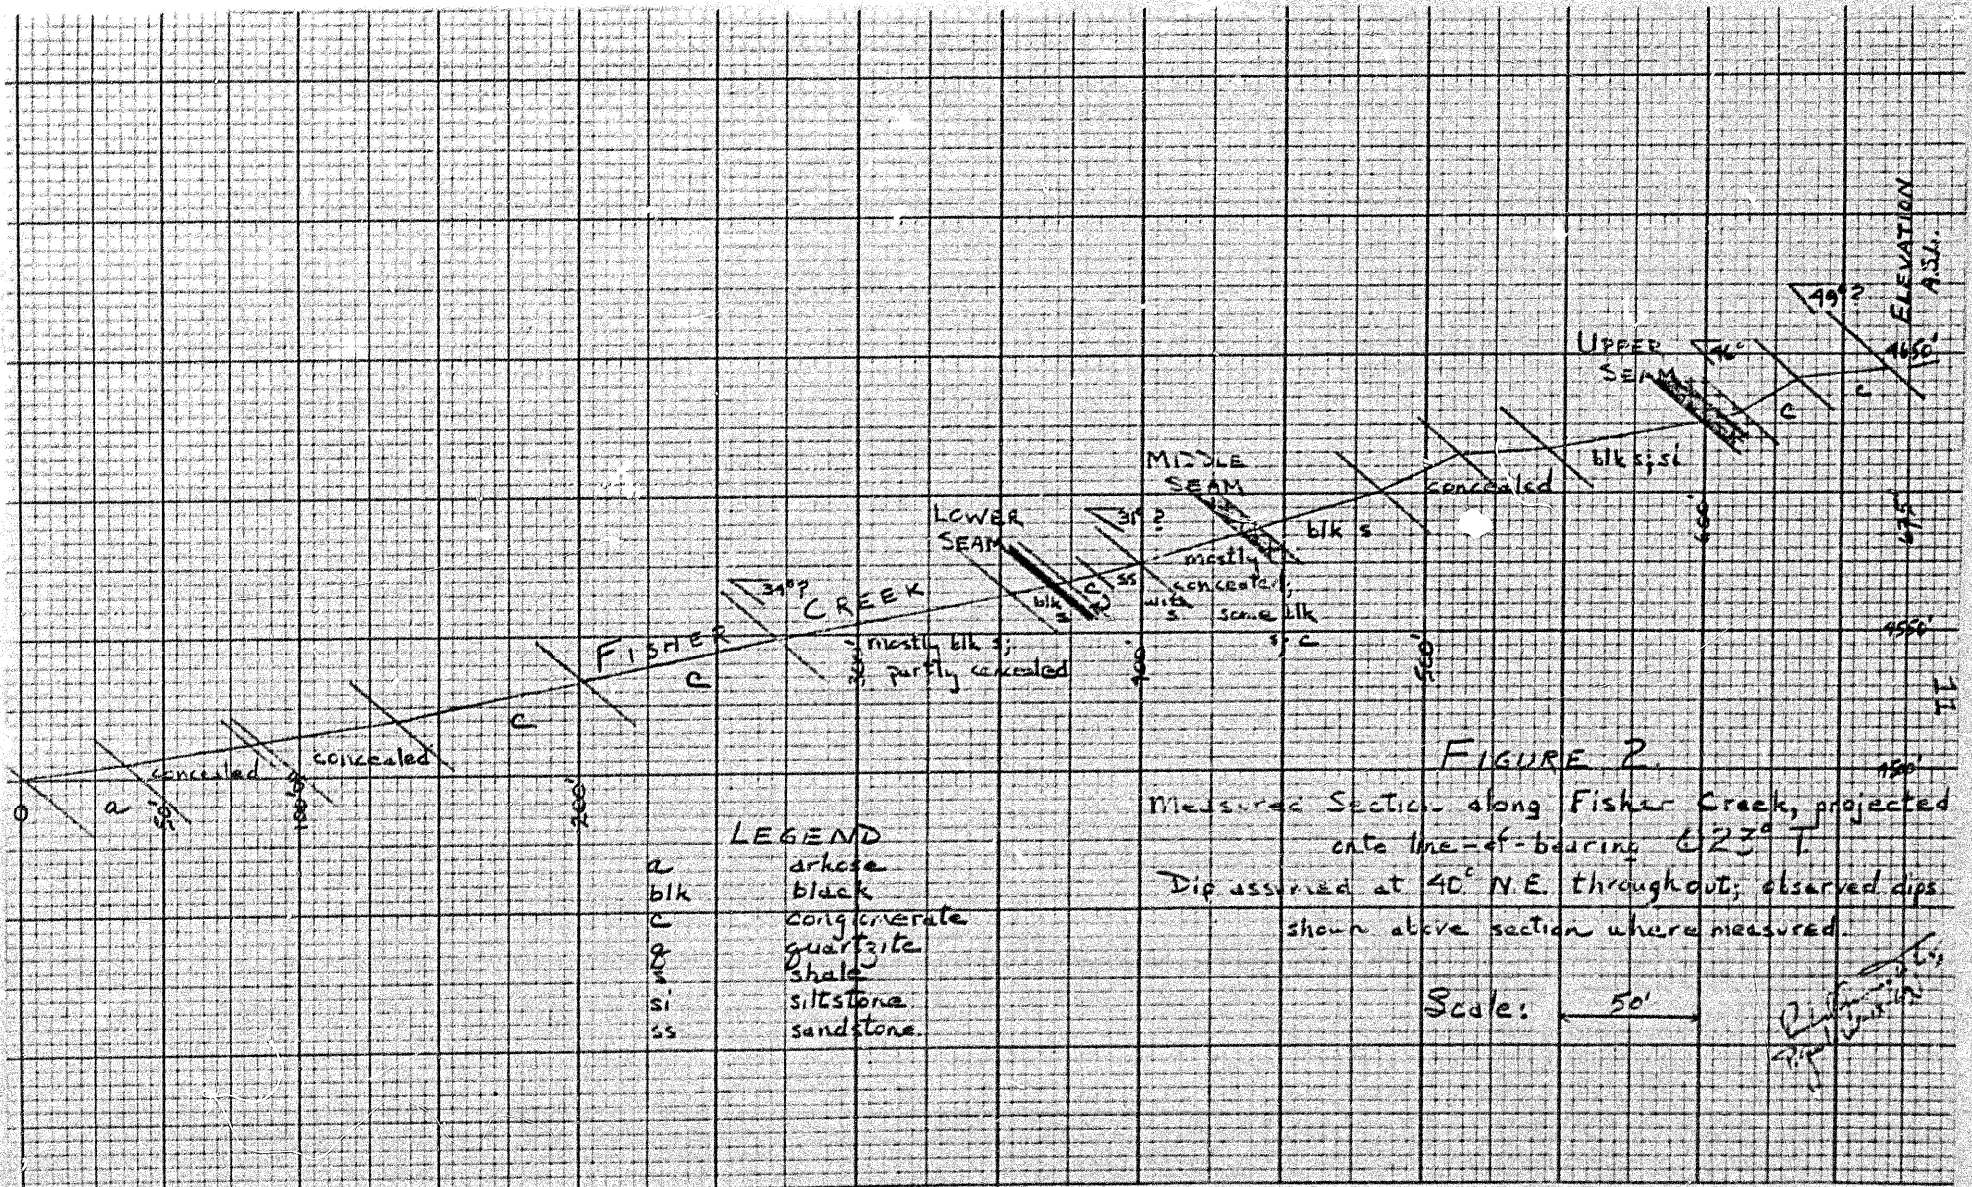 ELEVATION
A.S.L.
49°?
4650'
UPPER
SEAM
46°
c
c
MIDDLE
SEAM
blk s; si
concealed
LOWER
SEAM
31°?
blk s
600'
mostly
concealed;
some blk
s, c
ss
c
with
s
blk
s
34°?
FISHER CREEK
mostly blk s;
partly concealed
300'
400'
500'
4550'
c
c
II
concealed
concealed
a
0
50'
100'
200'
4500'
FIGURE 2.
Measured Section along Fisher Creek, projected
onto line-of-bearing 023° T.
Dip assumed at 40° N.E. throughout; observed dips
shown above section where measured.
Scale: 50'
LEGEND
a arkose
blk black
c conglomerate
q quartzite
s shale
si siltstone
ss sandstone